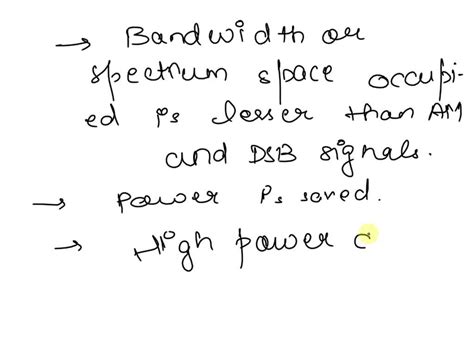 → Bandwidth or
spectrum space occupi-
ed is lesser than AM
and DSB signals.
→ Power is saved.
→ High power c